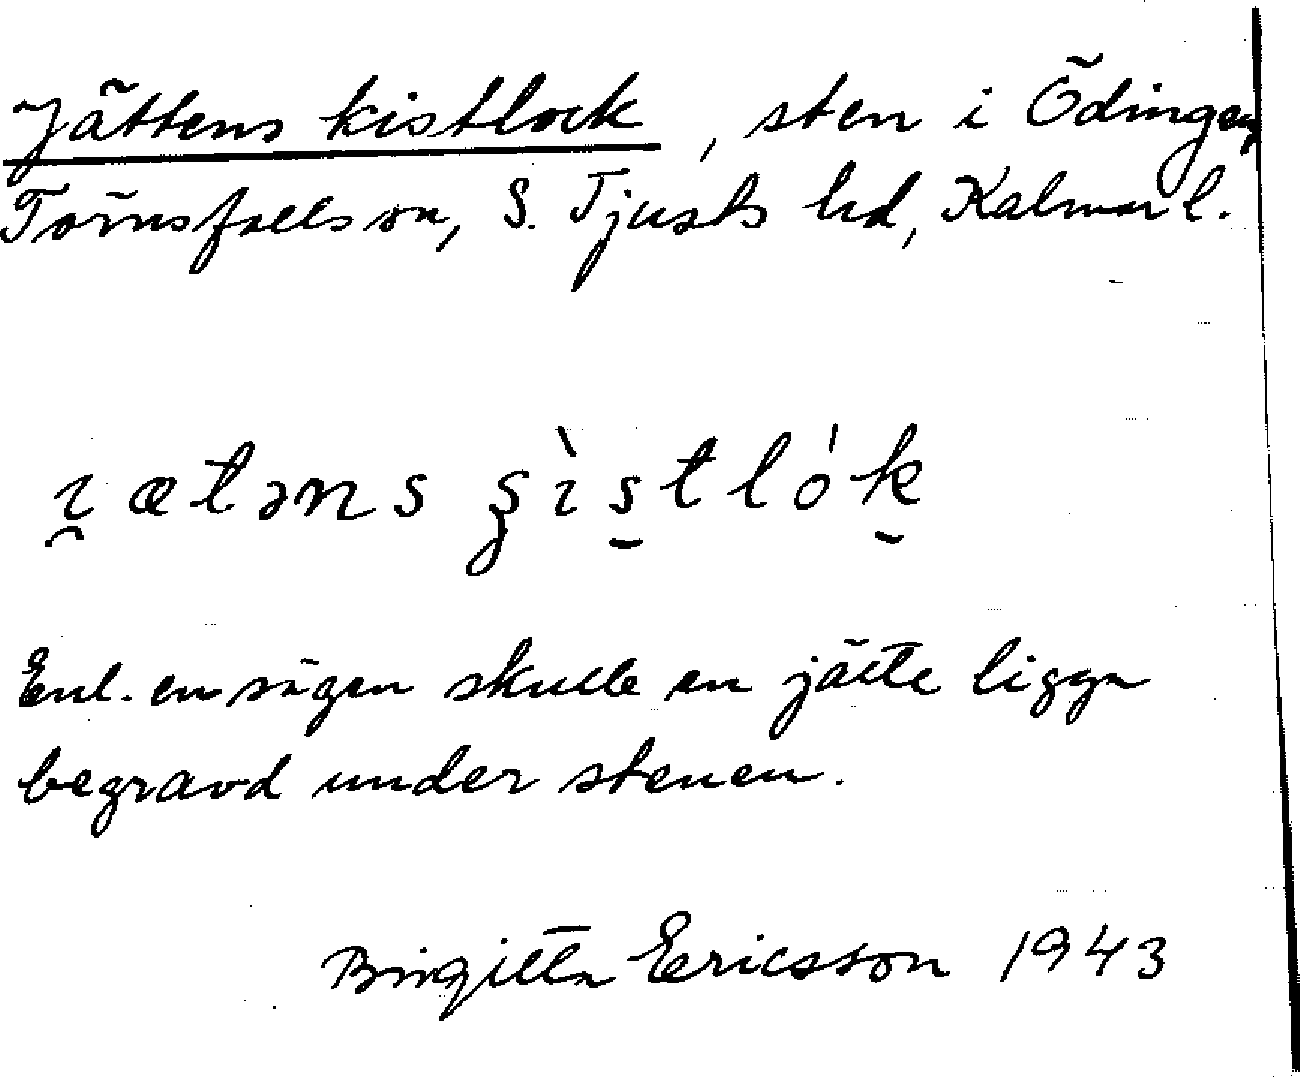 Jättens kistlock, sten i Ödingen,
Törnsfalls sn, S. Tjusts hd, Kalmar l.
ı̯ætəns ʂı̀s̠tlók̠
Enl. en sägen skulle en jätte ligga
begravd under stenen.
Birgitta Ericsson 1943